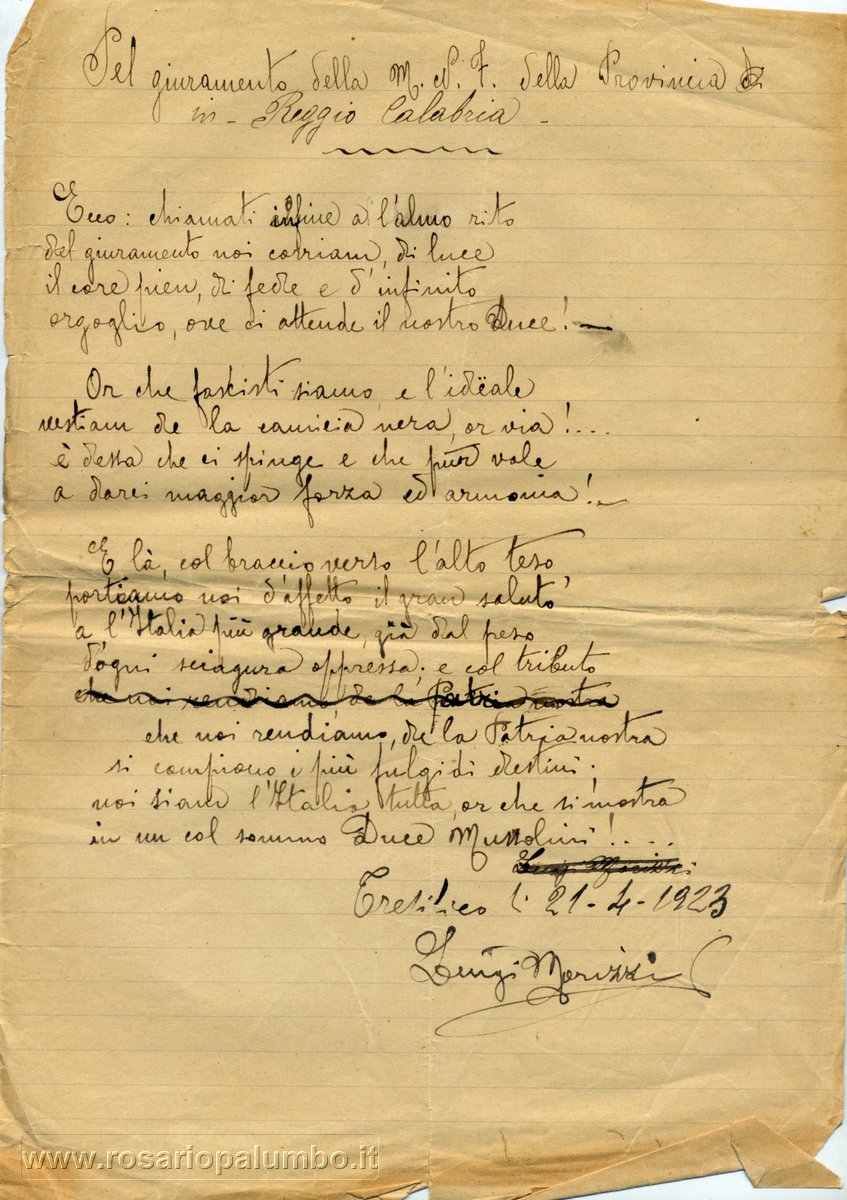 Pel giuramento della M. N. F. della Provincia di
in - Reggio Calabria -
Ecco: chiamati infine a l'almo rito
del giuramento noi corriam, di luce
il core pien, di fede e d'infinito
orgoglio, ove ci attende il nostro Duce! -
Or che fascisti siamo, e l'idëale
vestiam de la camicia nera, or via!....
è dessa che ci spinge e che pur vale
a darci maggior forza ed armonia! -
E là, col braccio verso l'alto teso,
portiamo noi d'affetto il gran saluto
a l'Italia più grande, già dal peso
d'ogni sciagura oppressa; e col tributo
che noi rendiamo, de la Patria nostra
che noi rendiamo, de la Patria nostra
si compiono i più fulgidi destini;
noi siam l'Italia tutta, or che si mostra
in un col sommo Duce Mussolini!....
Luigi Morizzi
Tresilico li 21-4-1923
Luigi Morizzi
www.rosariopalumbo.it